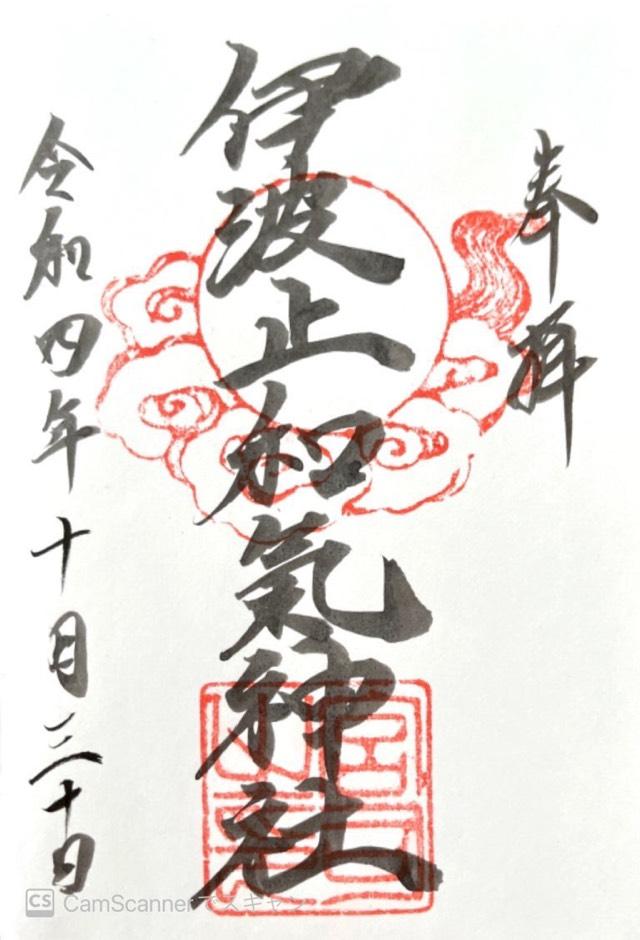 奉拝
伊波止和氣神社
令和四年十月三十日
CS CamScannerでスキャン